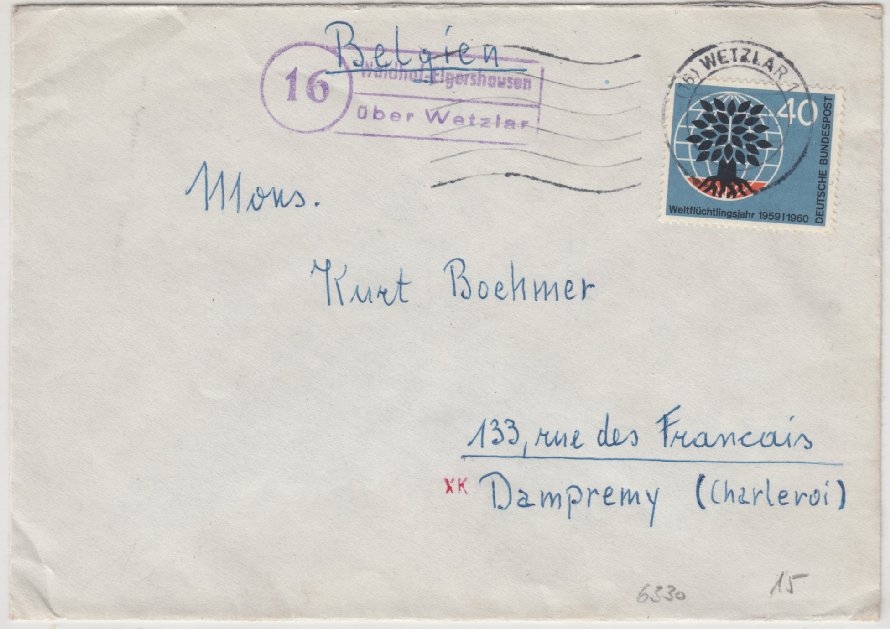 Belgien
16
Waldhof-Elgershausen
über Wetzlar
(16) WETZLAR 1
40
DEUTSCHE BUNDESPOST
Weltflüchtlingsjahr 1959|1960
Mons.
Kurt Boehmer
133, rue des Francais
XK Dampremy (Charleroi)
6330
15